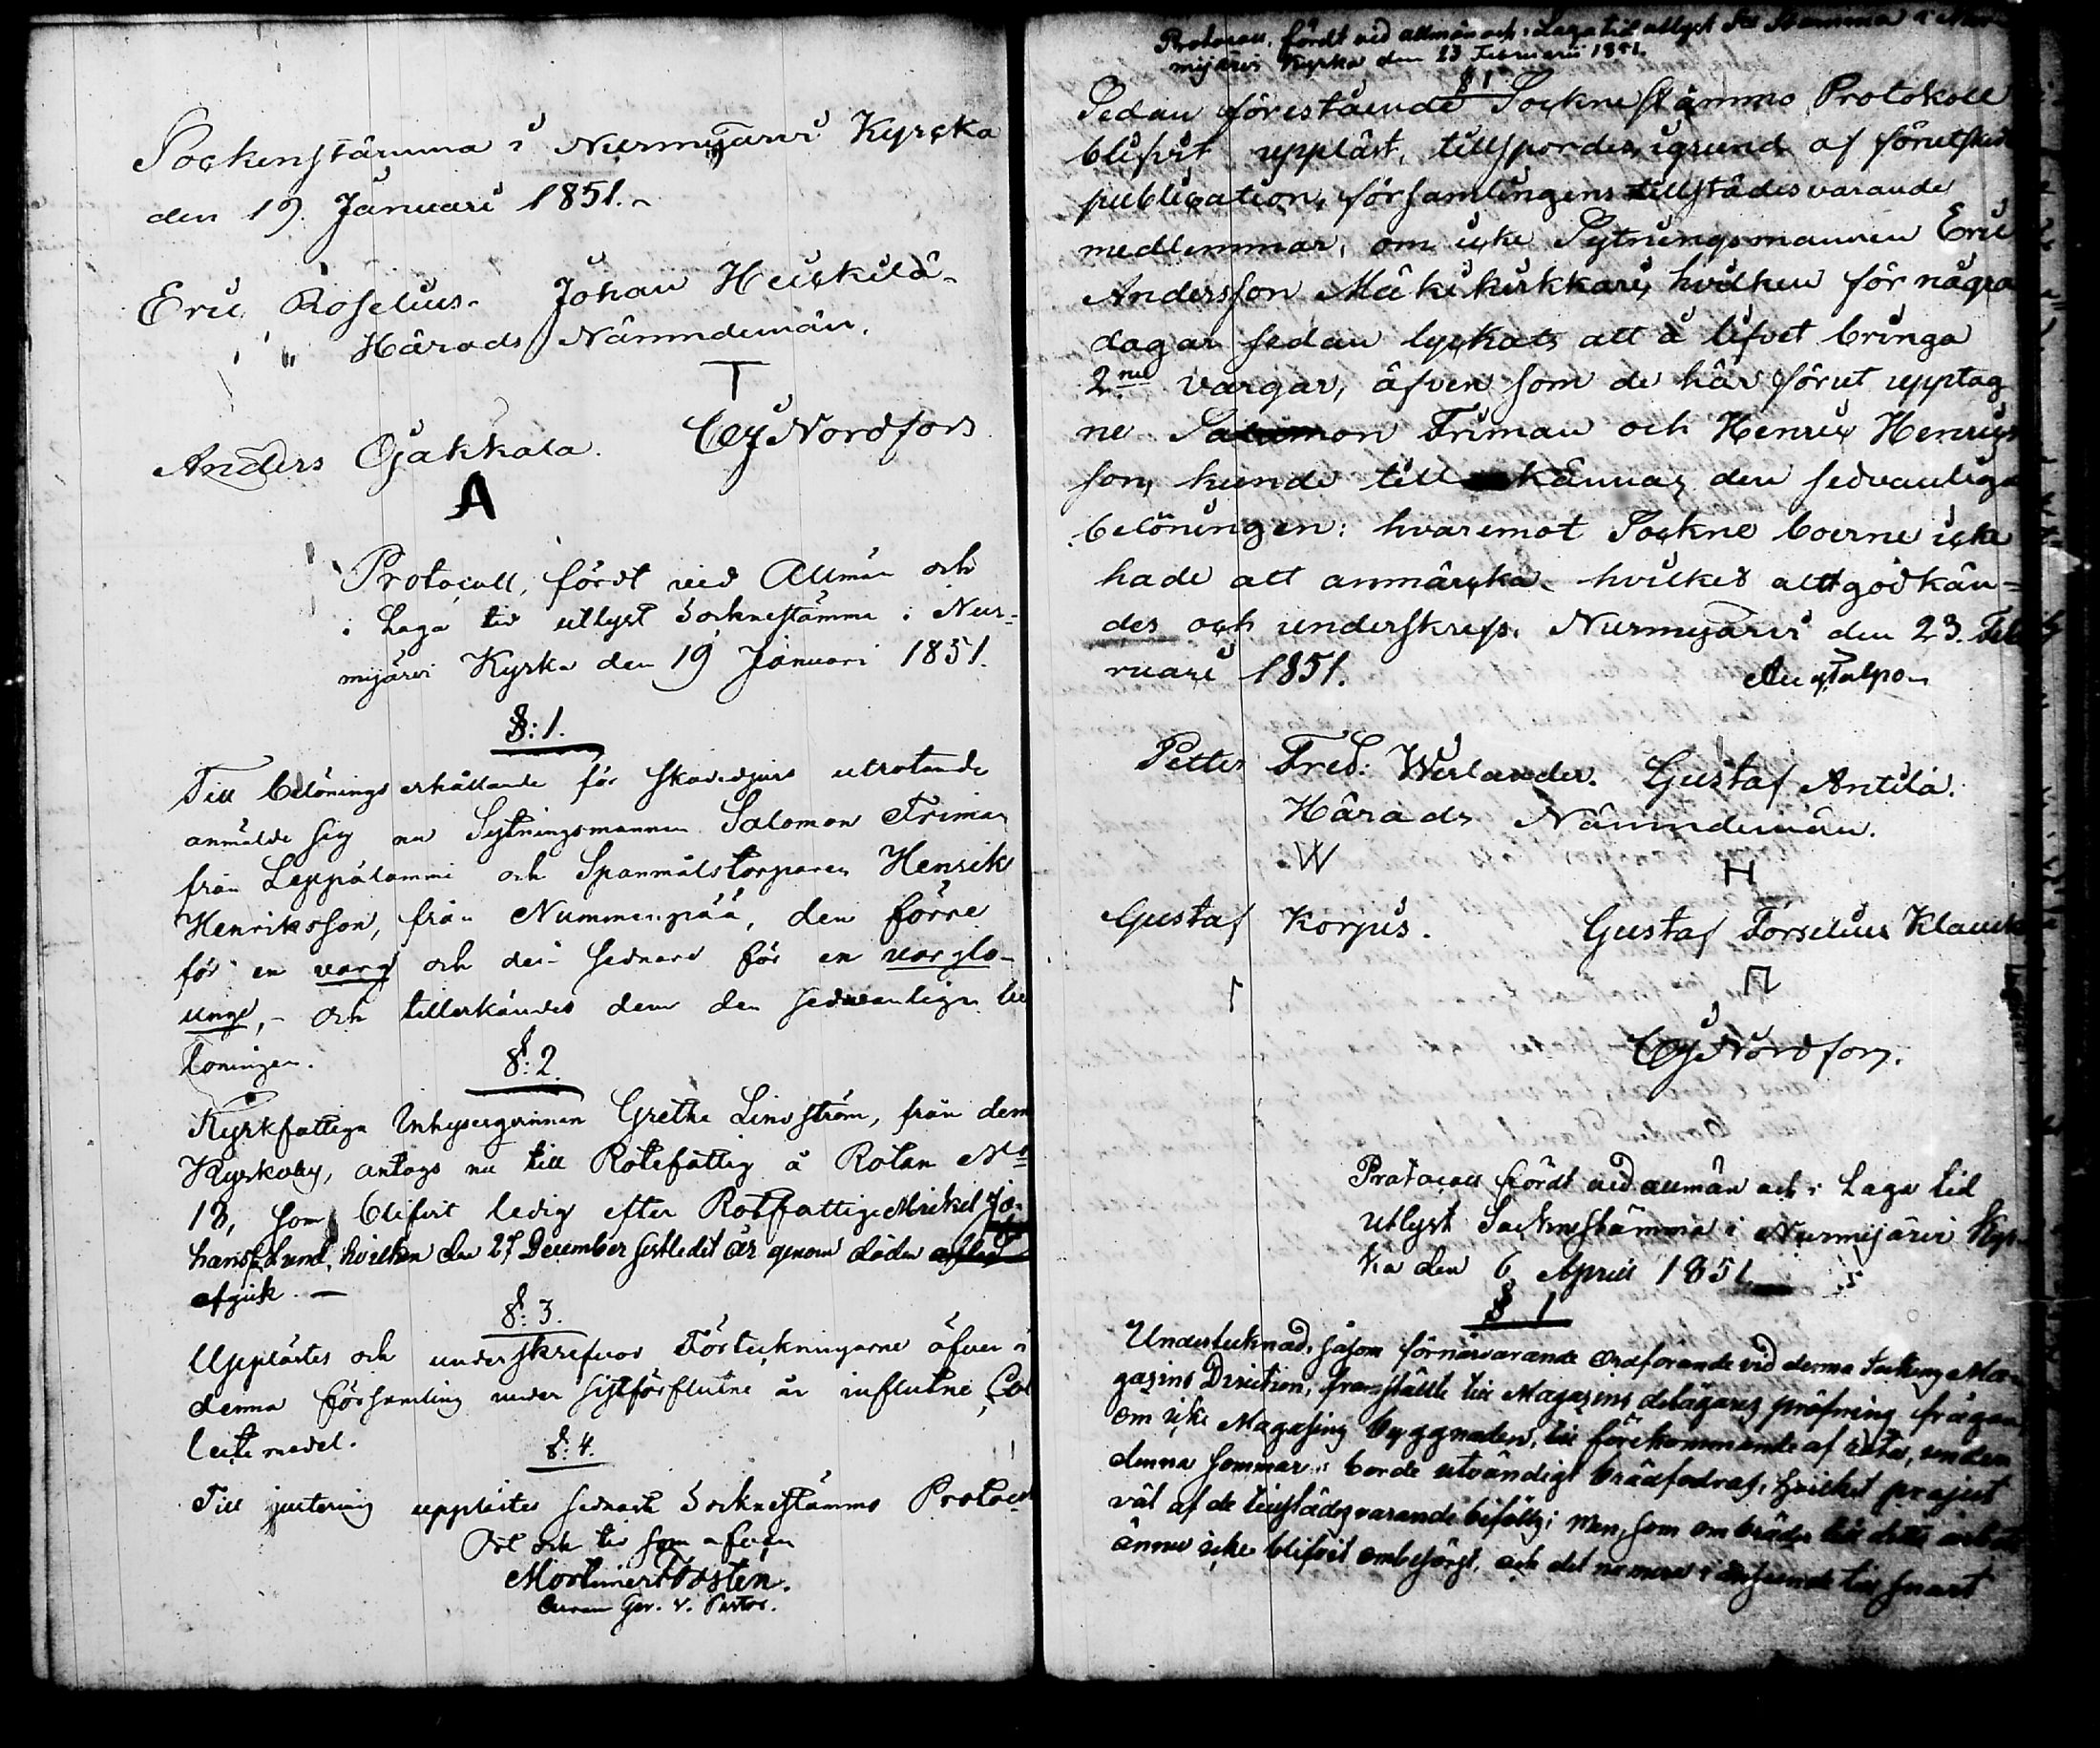 Sockenstämma i Nurmijärvi Kyrcka
den 19 Januari 1851.
Eric Roselius. Johan Heickilä
Härads Nämndemän.
T
Anders Ojakkala. CGNordfors
A
Protocoll, fördt vid Allmän och
i Laga tid utlyst Socknestämma i Nur-
mijärvi Kyrka den 19 Januari 1851.
§: 1.
Till belönings erhållande för skadedjurs utrotande
anmälde sig nu Sytningsmannen Salomon Friman
från Leppälammi och Spanmålstorparen Henrik
Henriksson, från Nummenpää, den förre
för en varg och den sednare för en varglo-
unge, - och tillerkändes dem den sedvanliga be
löningen.
§: 2.
Kyrkfattiga Inhysesqvinnan Gretha Lindström, från
Kyrkoby, antogs nu till Rotefattig å Rotan No
13, som blifvit ledig efter Rotfattige Mickel Jo-
hansson Lund, hvilken den 27 December sistledit år genom döden
afgick. —
§: 3.
Upplästes och underskrefvos Förteckningarne öfver i
denna församling under sistförflutne år influtne Col
lecte medel.
§: 4.
Till justering upplästes sednaste Socknestämmo Protocoll
Ort och tid som ofvan
Mortimer Costén.
Curam Ger. v. Pastor.
Protocoll, fördt vid allmän och i Laga tid utlyst Sockne Stämma i Nur-
mijärvi Kyrka den 23 Februarii 1851.
§ 1
Sedan förestående Sockne stämmo Protokoll
blifvit uppläst, tillspordes, i grund af förutskedd
publication, församlingens tillstädesvarande
medlemmar, om icke Sytningsmannen Eric
Andersson Mäkikirkkari, hvilken för några
dagar sedan lyckats att å lifvet bringa
2ne vargar, äfven som de här förut upptag
ne Salamon Friman och Henric Henrics
son, kunde tillkännas den sedvanliga
belöningen: hvaremot Sockne boerne icke
hade att anmärcka, hvilket allt godkän=
des och underskrefs. Nurmijärvi den 23. Feb
ruari 1851.
Petter Fred: Werlander. Gustaf Antila.
Härads Nämndemän.
W H
Gustaf Korpis. Gustaf Forselius Klauck
CGNordfors.
Protocoll fördt vid allmän och i Laga tid
utlyst Socknestämma i Nurmijärvi Kyr-
ka den 6 April 1851.
§ 1
Undertecknad, såsom förnärvarande Ordförande vid denna Sockens Ma-
gazins Direction, framställte till Magazins delägares pröfning frågan,
om icke Magasins byggnaden, till förekommande af röta, under
denna sommar, borde utvändigt brädfodras, hvilket project
väl af de tillstädesvarande bifölls; men, som om bräder till detta arbete
ännu icke blifvit ombesörgt, och det nu mera i anseende till snart